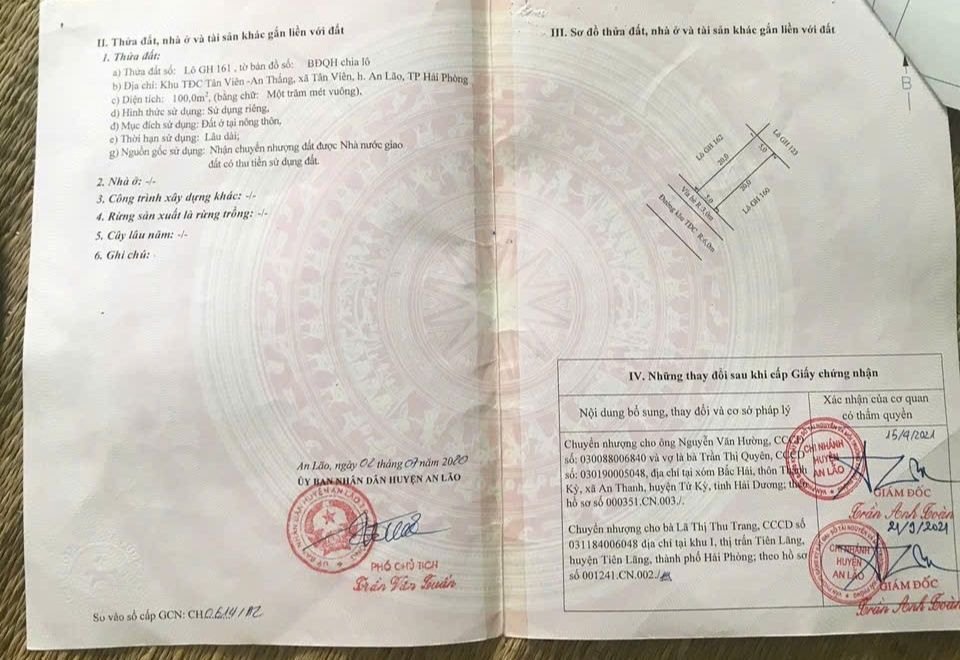 II. Thửa đất, nhà ở và tài sản khác gắn liền với đất
1. Thửa đất:
a) Thửa đất số: Lô GH 161 , tờ bản đồ số: BĐQH chia lô
b) Địa chỉ: Khu TĐC Tân Viên -An Thắng, xã Tân Viên, h. An Lão, TP Hải Phòng
c) Diện tích: 100,0m², (bằng chữ: Một trăm mét vuông),
d) Hình thức sử dụng: Sử dụng riêng,
đ) Mục đích sử dụng: Đất ở tại nông thôn,
e) Thời hạn sử dụng: Lâu dài;
g) Nguồn gốc sử dụng: Nhận chuyển nhượng đất được Nhà nước giao
đất có thu tiền sử dụng đất.
2. Nhà ở: -/-
3. Công trình xây dựng khác: -/-
4. Rừng sản xuất là rừng trồng: -/-
5. Cây lâu năm: -/-
6. Ghi chú:
An Lão, ngày 02 tháng 07 năm 2020
ỦY BAN NHÂN DÂN HUYỆN AN LÃO
PHÓ CHỦ TỊCH
Trần Văn
Số vào sổ cấp GCN: CH
III. Sơ đồ thửa đất, nhà ở và tài sản khác gắn liền với đất
B
Lô GH 162
Lô GH 123
5,0
20,0
20,0
5,0
Lô GH 160
Vỉa hè R:3,0m
Đường khu TĐC R:6,0m
IV. Những thay đổi sau khi cấp Giấy chứng nhận
Nội dung bổ sung, thay đổi và cơ sở pháp lý
Xác nhận của cơ quan
có thẩm quyền
Chuyển nhượng cho ông Nguyễn Văn Hường, CCCD
số: 030088006840 và vợ là bà Trần Thị Quyên, CCCD
số: 030190005048, địa chỉ tại xóm Bắc Hải, thôn Thanh
Kỳ, xã An Thanh, huyện Tứ Kỳ, tỉnh Hải Dương; theo
hồ sơ số 000351.CN.003./.
15/4/2021
CHI NHÁNH
HUYỆN
AN LÃO
GIÁM ĐỐC
Trần Anh Toàn
Chuyển nhượng cho bà Lã Thị Thu Trang, CCCD số
031184006048 địa chỉ tại khu 1, thị trấn Tiên Lãng,
huyện Tiên Lãng, thành phố Hải Phòng; theo hồ sơ
số 001241.CN.002./
21/9/2021
CHI NHÁNH
HUYỆN
AN LÃO
GIÁM ĐỐC
Trần Anh Toàn